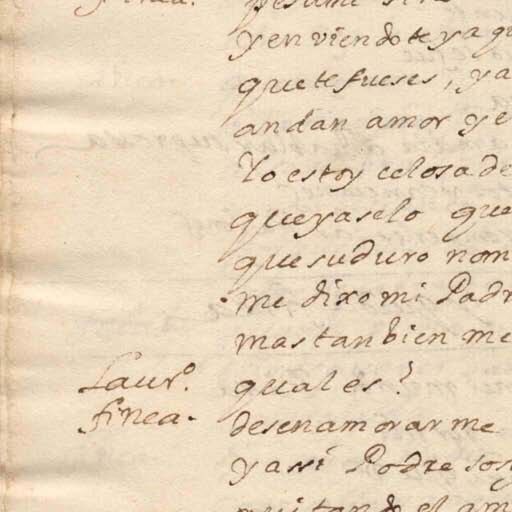 finea.
y en viendote ya q
que te fueses, y a
andan amor y e
Yo estoy celosa de
que ya se lo que
que su duro nom
me dixo mi Padr
mas tanbien me
Laur.º qual es?
finea. desenamorarme
y assi Podre sos
quitando el am